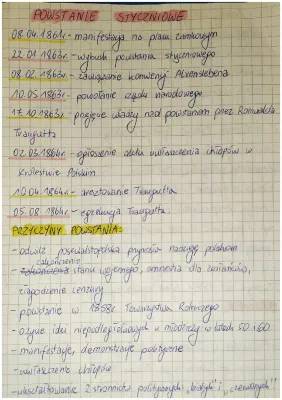 POWSTANIE STYCZNIOWE
08.04.1861r. - manifestacja na placu zamkowym
22.01.1863r. - wybuch powstania styczniowego
08.02.1863r. - zawiązanie konwencji Alvenslebena
10.05.1863r. - powstanie rządu narodowego
17.10.1863r. - przejęcie władzy nad powstaniem przez Romualda
Traugutta
02.03.1864r. - ogłoszenie aktu uwłaszczenia chłopów w
Królestwie Polskim
10.04.1864r. - aresztowanie Traugutta
05.08.1864r. - egzekucja Traugutta
PRZYCZYNY POWSTANIA:
- odwilż posewastopolska przynosi nadzieję polakom
zakończenie
- stanu wojennego, amnestia dla zesłańców,
złagodzenie cenzury
- powstanie w 1858r. Towarzystwa Rolniczego
- ożycie idei niepodległościowych w młodzieży w latach 50 i 60.
- manifestacje, demonstracje polityczne
- uwłaszczenie chłopów
- ukształtowanie 2 stronnictw politycznych „białych” i „czerwonych”